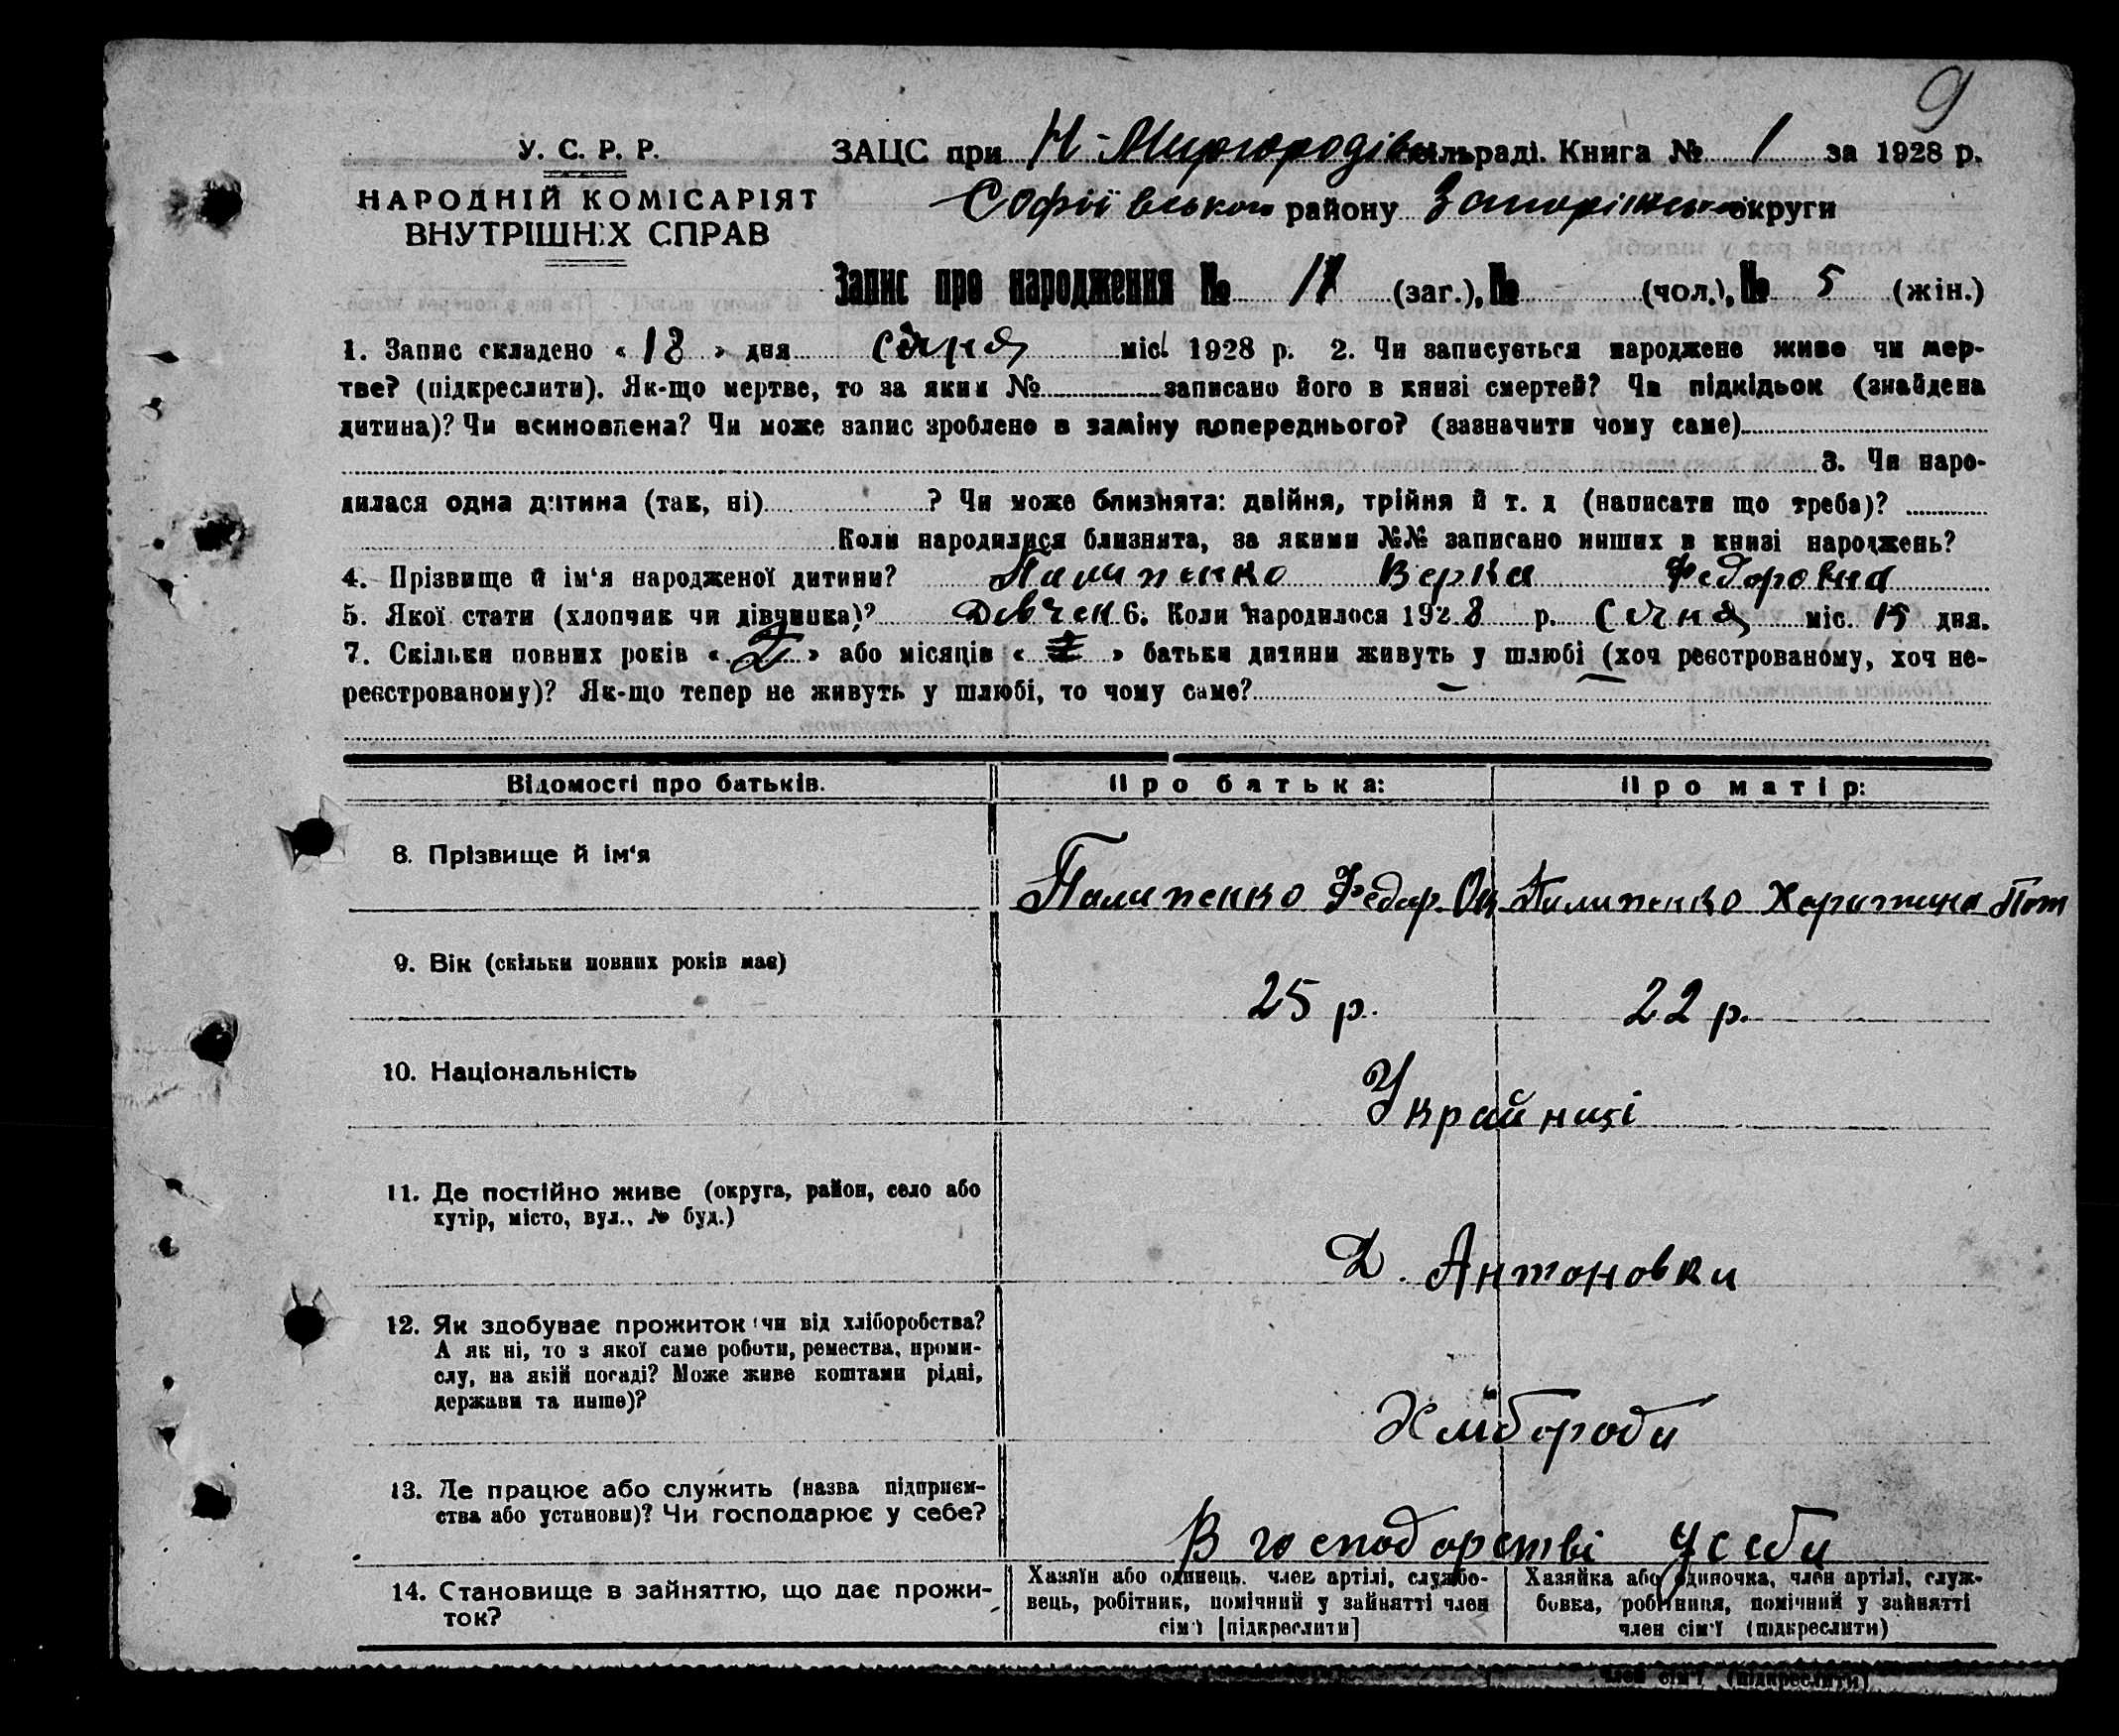 9
У. С. Р. Р.
ЗАЦС при Н-Миргородівс сільраді. Книга № 1 за 1928 р.
НАРОДНІЙ КОМІСАРІЯТ
ВНУТРІШНІХ СПРАВ
Софіївською району Запоріжської округи
Запис про народження № 17 (заг.), № (чол.), № 5 (жін.)
1. Запис складено « 18 » дня Січня міс. 1928 р. 2. Чи записується народжене живе чи мер-
тве? (підкреслити). Як-що мертве, то за яким № записано його в книзі смертей? Чи підкідьок (знайдена
дитина)? Чи всиновлена? Чи може запис зроблено в заміну попереднього? (зазначити чому саме)
3. Чи наро-
дилася одна дитина (так, ні) ? Чи може близнята: двійня, трійня й т. д (написати що треба)?
Коли народилися близнята, за якими №№ записано инших в книзі народжень?
4. Прізвище й ім'я народженої дитини? Пилипенко Верка Федоровна
5. Якої стати (хлопчик чи дівчинка)? Девчен 6. Коли народилося 1928 р. Січня міс. 15 дня.
7. Скільки повних років « 2 » або місяців « » батьки дитини живуть у шлюбі (хоч реєстрованому, хоч не-
реєстрованому)? Як-що тепер не живуть у шлюбі, то чому саме? —
Відомості про батьків. Про батька: Про матір:
8. Прізвище й ім'я
Пилипенко Федор Пилипенко Харитина Пот
9. Вік (скільки повних років має)
25 р. 22 р.
10. Національність
Украйнці
11. Де постійно живе (округа, район, село або
хутір, місто, вул., № буд.)
Д. Антоновки
12. Як здобуває прожиток чи від хліборобства?
А як ні, то з якої саме роботи, ремества, проми-
слу, на якій посаді? Може живе коштами рідні,
держави та инше)?
Хліброби
13. Де працює або служить (назва підприєм-
ства або установи)? Чи господарює у себе?
В господорстві усеби
14. Становище в зайняттю, що дає прожи-
ток?
Хазяїн або одинець, член артілі, службо-
вець, робітник, помічний у зайнятті член
сім'ї [підкреслити]
Хазяйка або одиночка, член артілі, служ-
бовка, робітниця, помічний у зайнятті
член сім'ї (підкреслити)
член сім'ї (підкреслити)